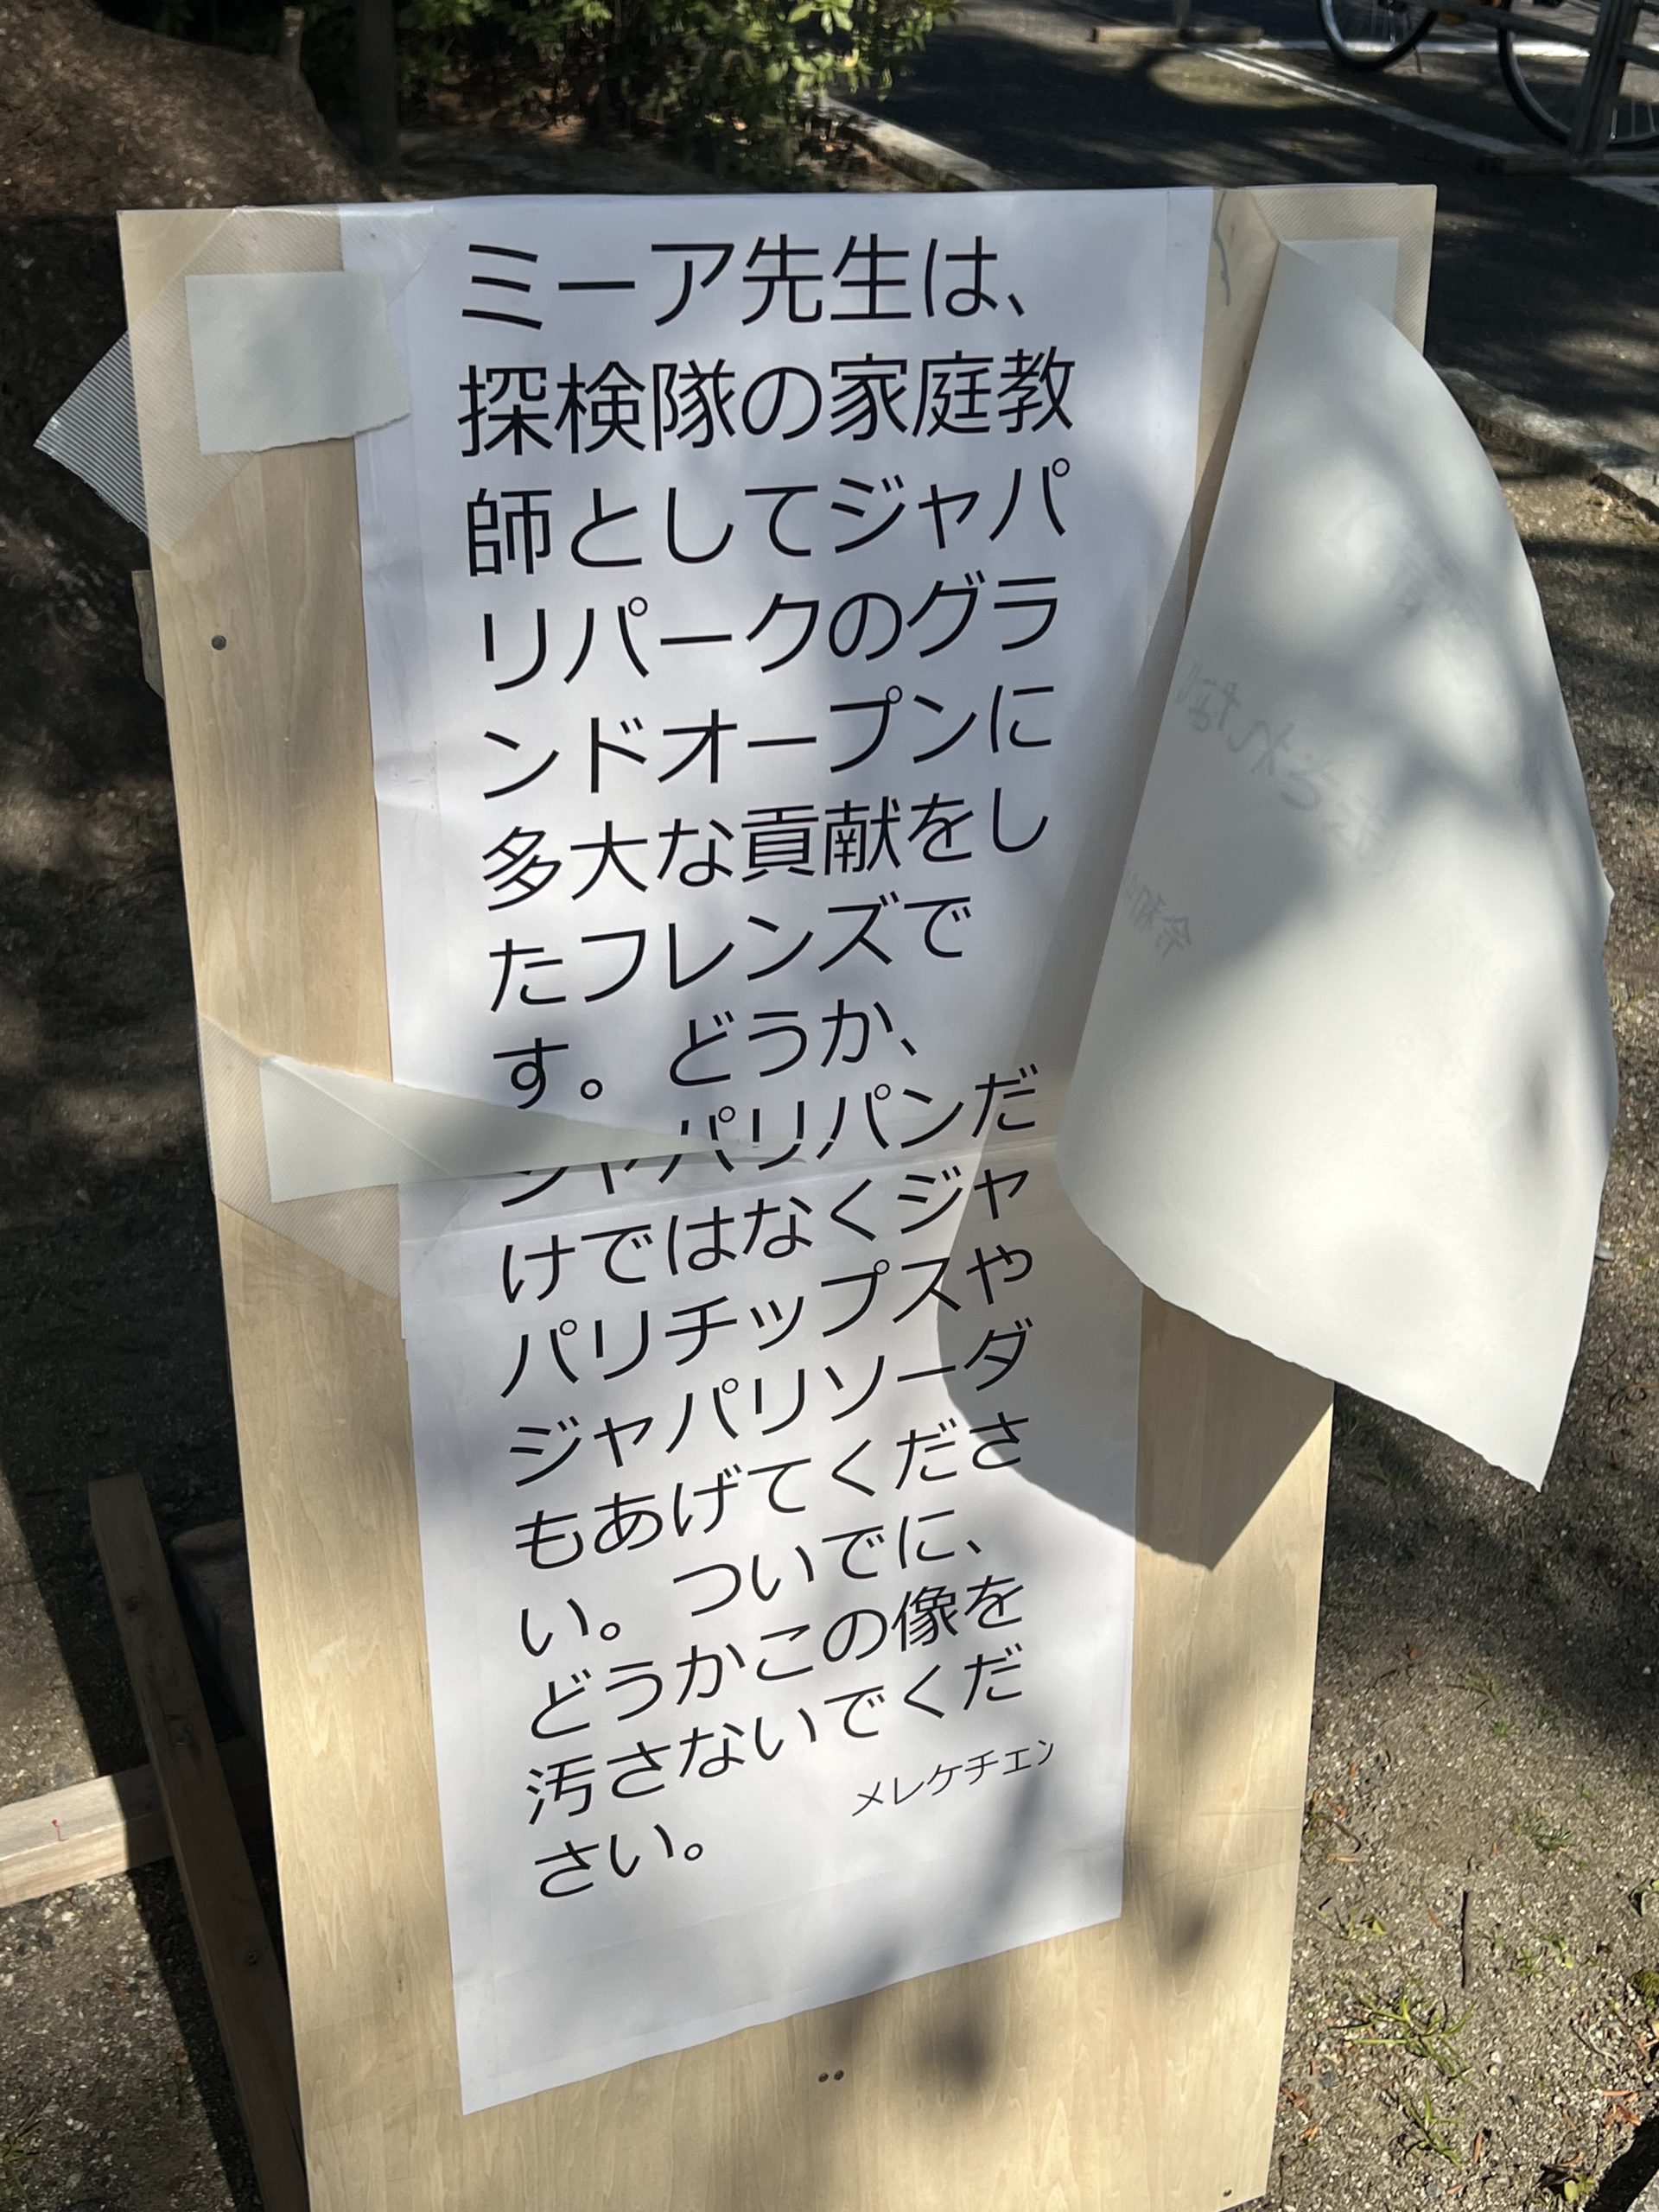 ミーア先生は、
探検隊の家庭教
師としてジャパ
リパークのグラ
ンドオープンに
多大な貢献をし
たフレンズで
す。どうか、
ジャパリパンだ
けではなくジャ
パリチップスや
ジャパリソーダ
もあげてくださ
い。ついでに、
どうかこの像を
汚さないでくだ
さい。
メレケチェン